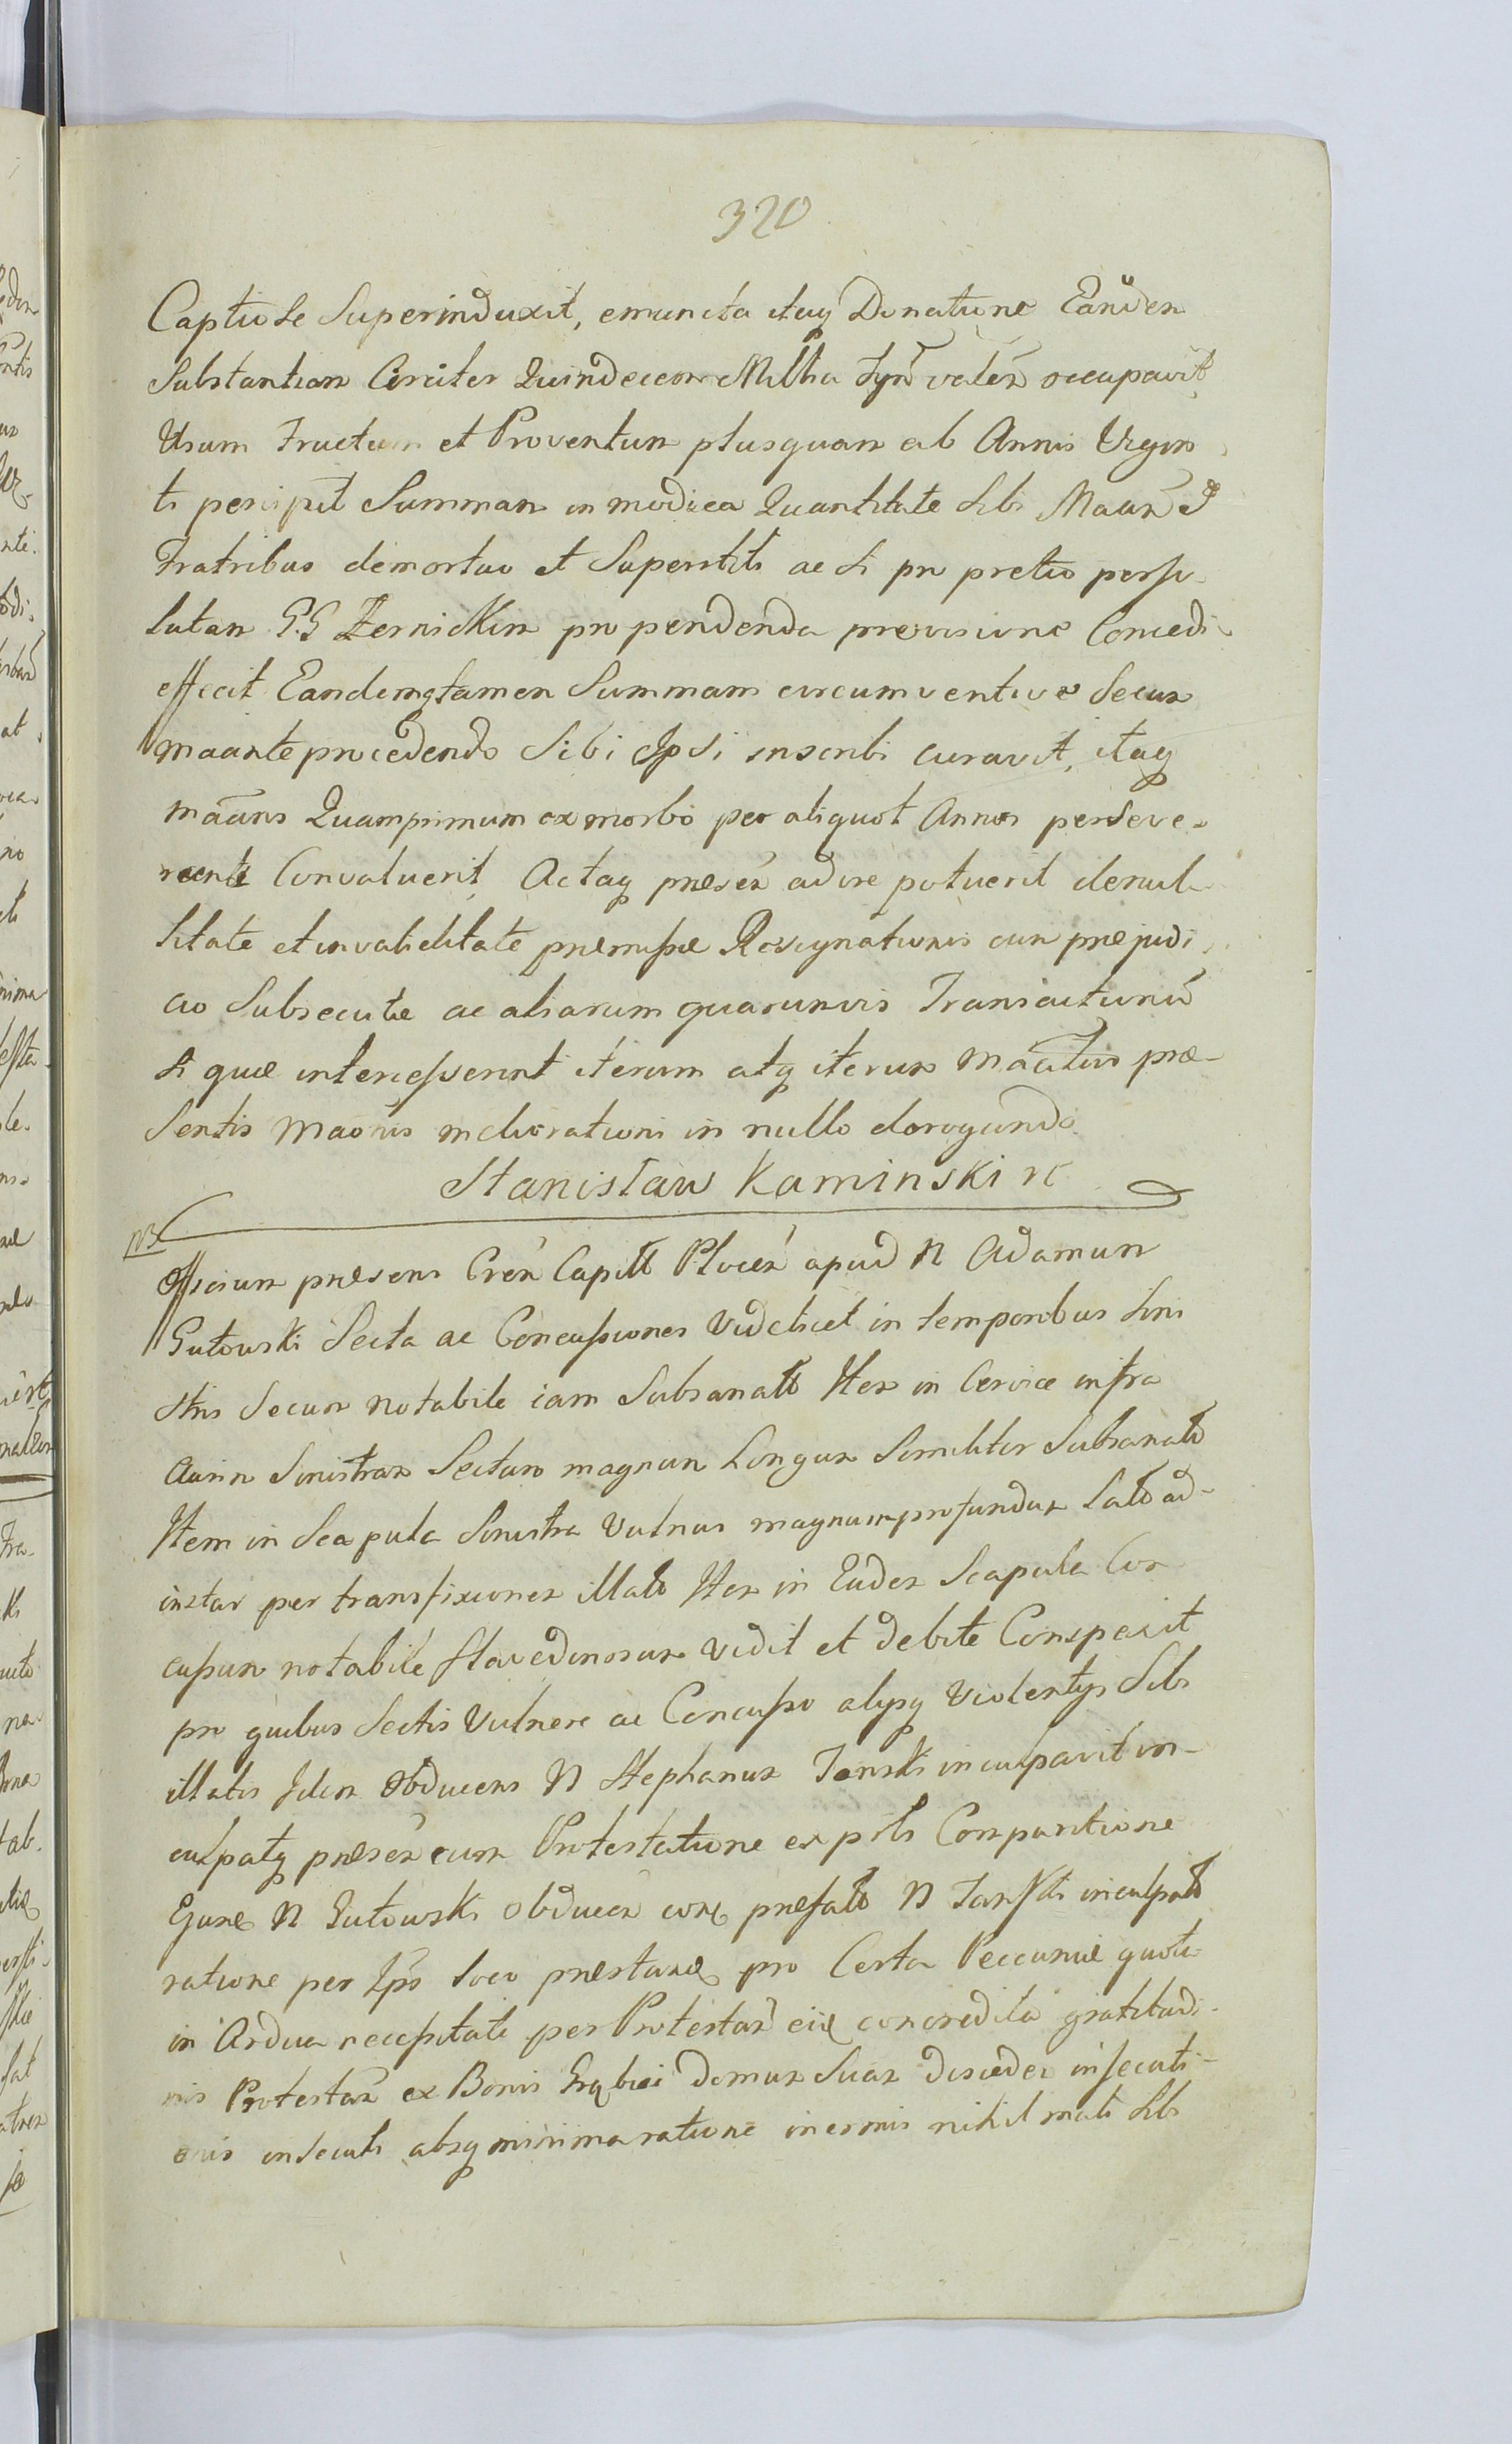 320
Captiose Superinduxit, emuncta itaq Donatione Eanden
Substantiam Circiter Quindecem Millia Tynf valen occupavit
Usum Fructum et Proventum plusquam ab Annis Vigin
ti percipit Summam in modica Quantitate Sibi Maan &
Fratribus demortuo et Superstiti ac si pro pretio perso
lutam G.G Zernickim pro pendenda provisione Concedi
effecit Eandemqtamen Summam circumventive Secum
maante procedendo Sibi Ipsi inscribi curavit, itaq
maans Quamprimum ex morbo per aliquot Annos perseve
rante Convaluerit Actaq præsen adire potuerit denul
litate et invaliditate præmissæ Resignationis cum præjudi
cio Subsecutæ ac aliarum quarumvis Transactionū
Si quæ intercesserint iterum atq iterum maatur præ
sentis maonis meliorationi in nullo derogando
Stanisław Kaminski
NB
Officium præsens Cren Capitl Plocen apud N Adamum
Gutowski Secta ac Concussiones Videlicet in temporibus Sini
stris Secum notabile iam Subsanatt Item in Cervice infra
Aurim Sinistram Sectum magnum Longum Similiter Subsanatt
Item in Scapula Sinistra Vulnus magnum profundum Latt ad
instar per transfixionem illatt Item in Eadem Scapula Con
cussum notabile flavedinosum vidit et debite Conspexit
pro quibus Sectis Vulnere ac Concusso alysq Violentys Sibi
illatis Idem Obducens N Stephanum Tanski inculpavit in
culpatq præsen cum Protestatione ex psti Comparitione
Ejusd N Gutowski Obducen cora præfatt N Tanski inculpatt
ratione per Ips loco præstandæ pro Certa Peccuniæ quota
in Ardua necessitate per Protestan eid concredita gratitudi
nis Protestan ex Bonis domum Suam discedere insecuti
onis insecuti absq minima ratione inermis nihil mali Sibi